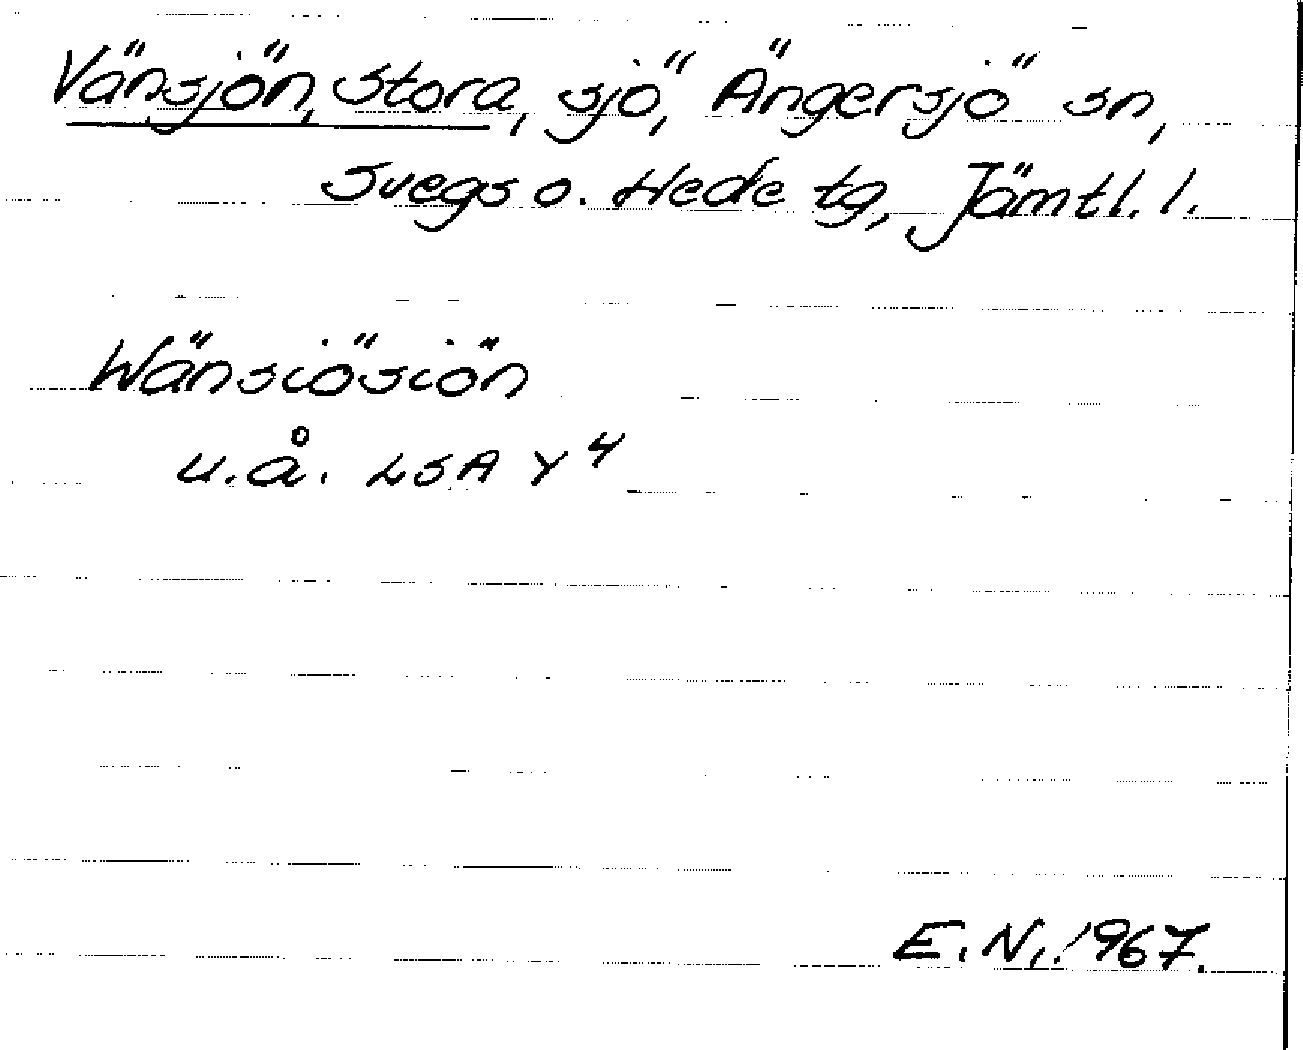 Vänsjön, Stora, sjö, Ängersjö sn,
Svegs o. Hede tg, Jämtl. l.
Wänsiösiön
u.å. LSA Y 4
E.N., 1967.